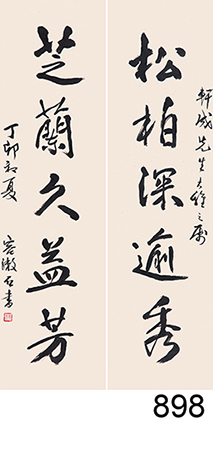 軒成先生大雅之屬
松柏深逾秀
芝蘭久益芳
丁卯初夏
容漱石書
898